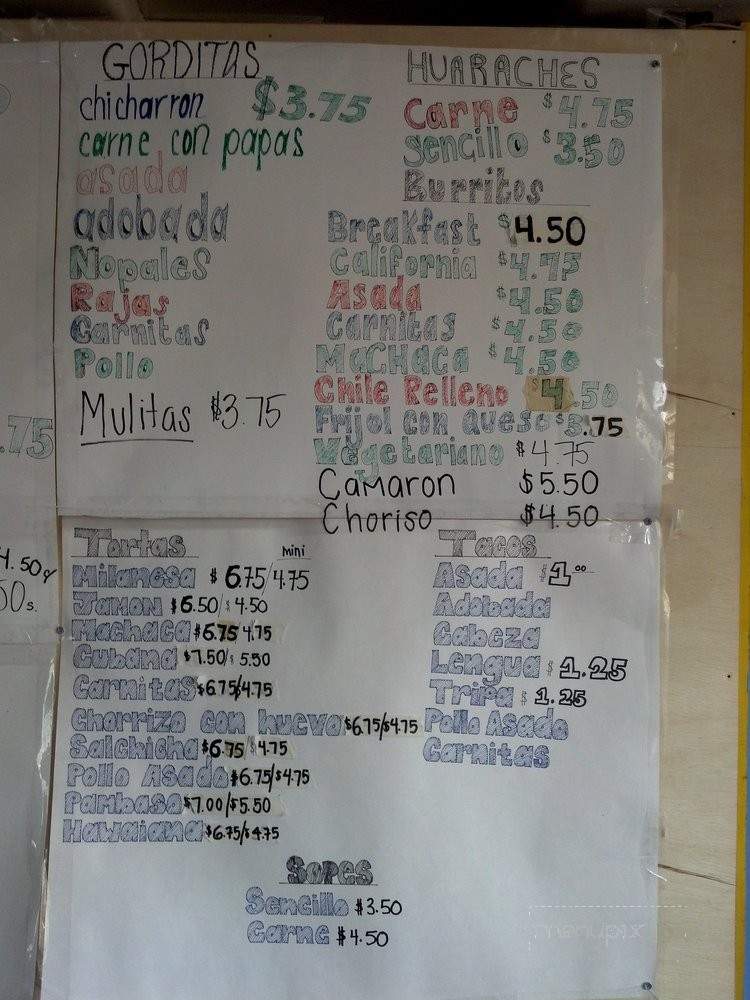 GORDITAS
chicharron $3.75
carne con papas
asada
adobada
Nopales
Rajas
Carnitas
Pollo
Mulitas $3.75
HUARACHES
Carne $4.75
Sencillo $3.50
Burritos
Breakfast $4.50
California $4.75
Asada $4.50
Carnitas $4.50
MaCHaca $4.50
Chile Relleno $4.50
Frijol con Queso $3.75
Vegetariano $4.75
Camaron $5.50
Choriso $4.50
.75
4.50
50s.
Tortas mini
Milanesa $6.75/4.75
Jamon $6.50/$4.50
Machaca $6.75 4.75
Cubana $7.50/$5.50
Carnitas $6.75/$4.75
Chorrizo con huevo $6.75/$4.75
Salchicha $6.75/$4.75
Pollo Asado $6.75/$4.75
Pambaso $7.00/$5.50
Hawaiana $6.75/$4.75
Tacos
Asada $1.00
Adobada
Cabeza
Lengua $1.25
Tripa $1.25
Pollo Asado
Carnitas
Sopes
Sencillo $3.50
Carne $4.50
menupix